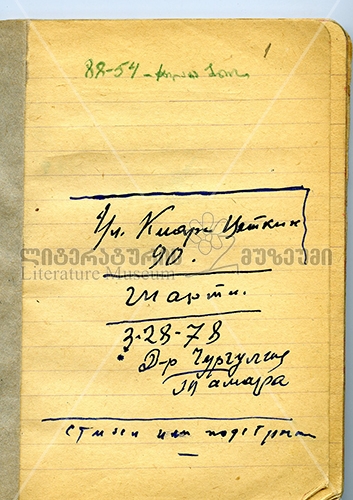 88-54 -
1
Ул. Клары Цеткин
90.
ლიტერატურის მუზეუმი
Literature Museum
3-28-78
Д-р
Тамара
стихи или подстрочн